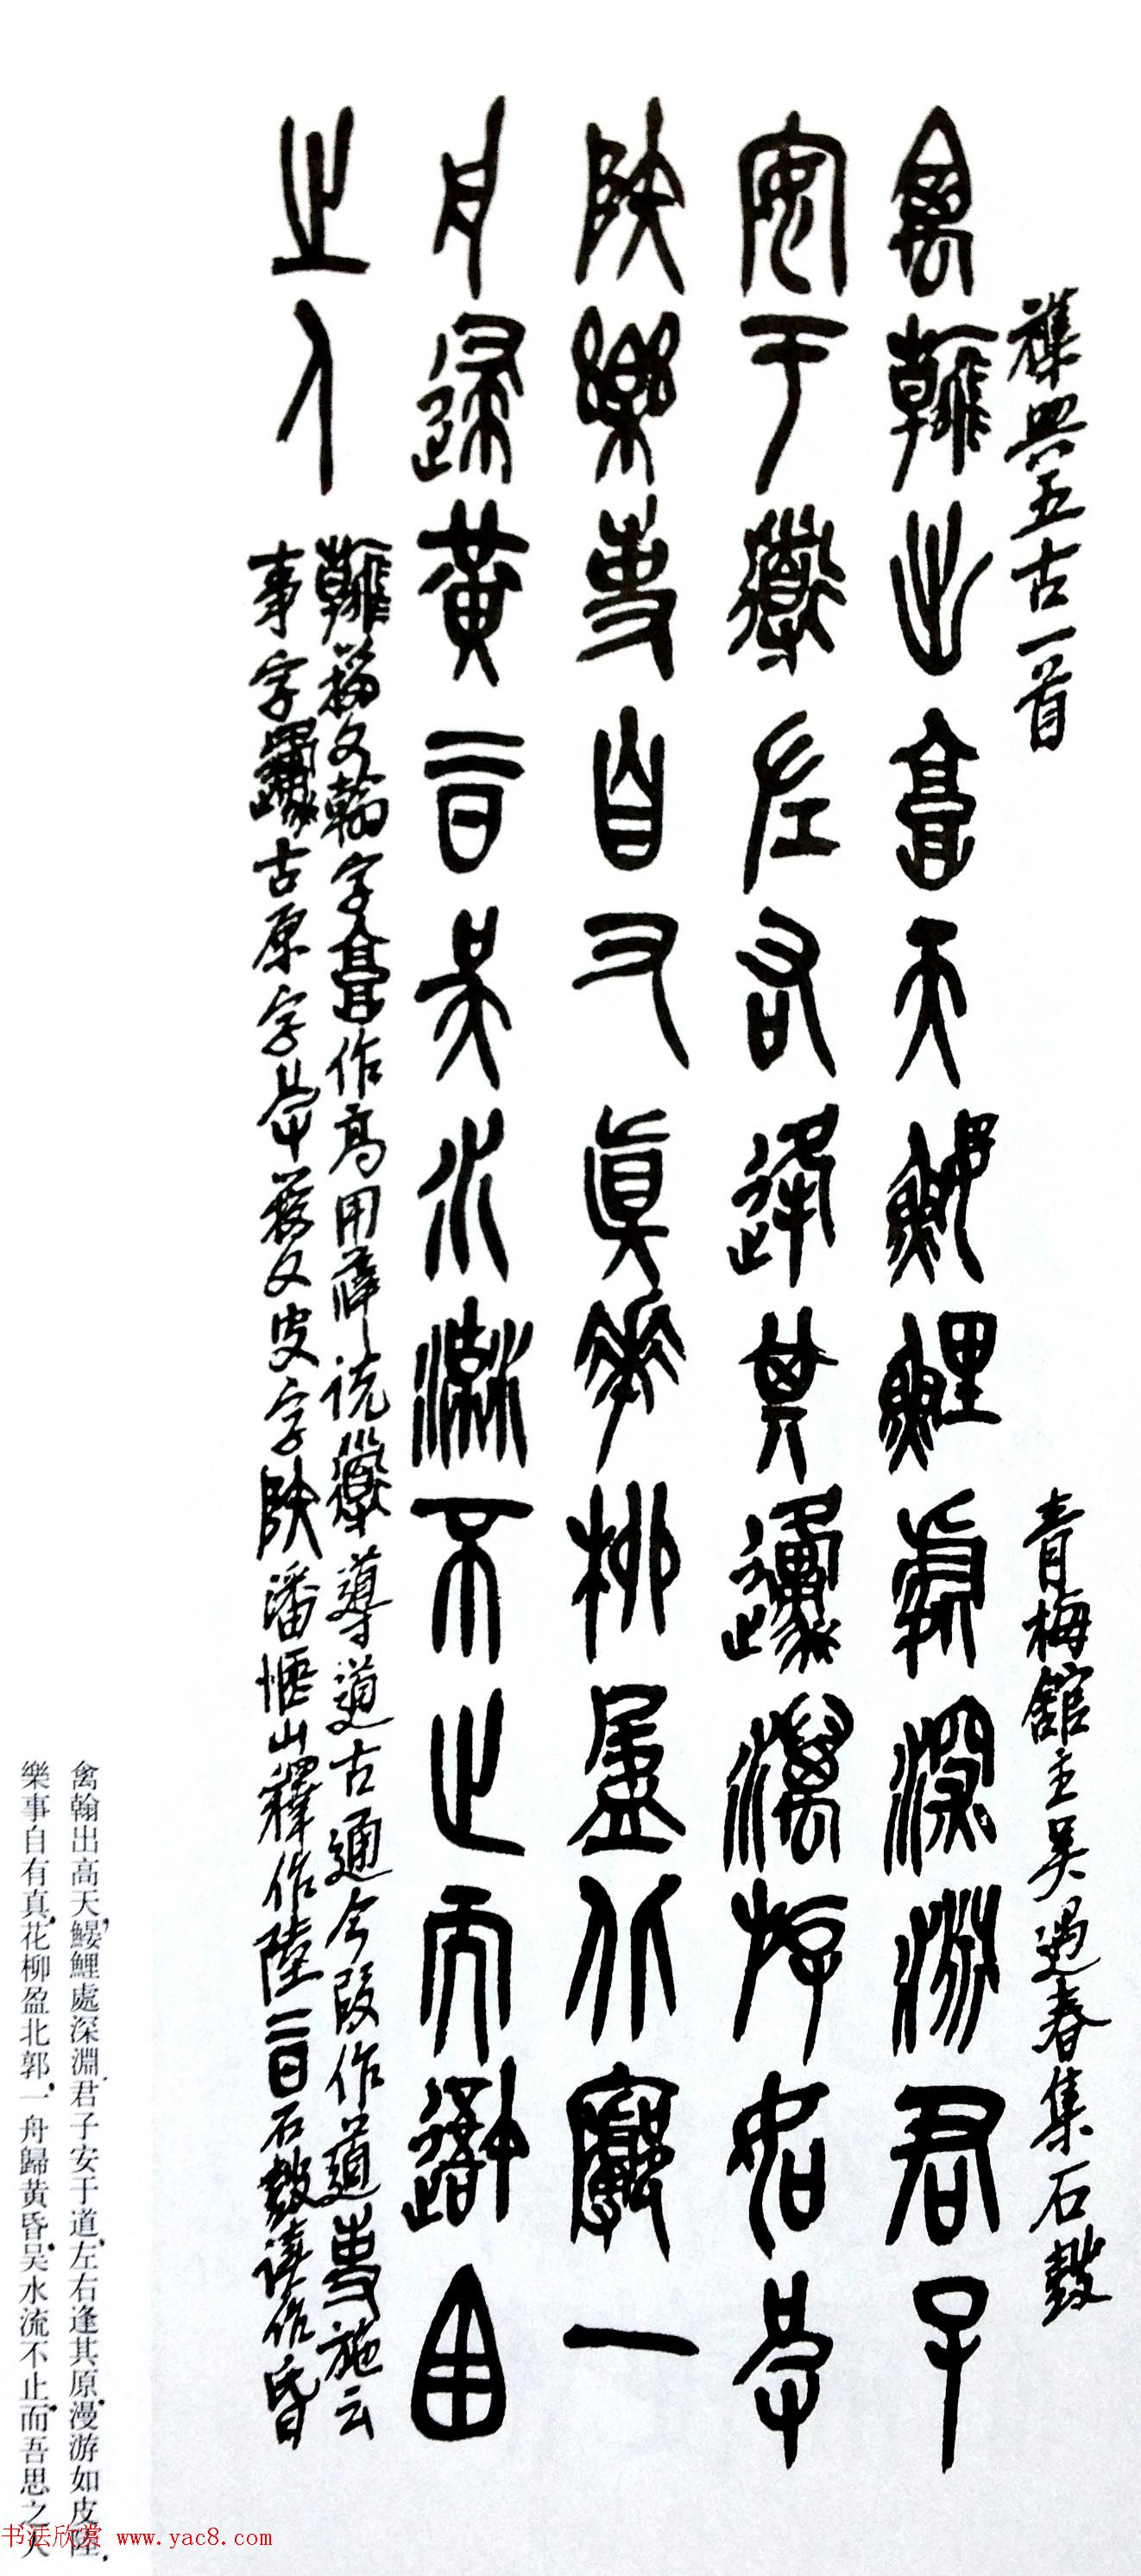 雜興五古一首
青梅館主吳過春集石鼓
禽翰出高天鰋鯉處深淵君子
安于道左右逢其原漫游如皮
陸樂事自有真花柳盈北郭一
舟歸黃昏吳水流不止而吾思
之人
翰籀文翰字高作高用薛說道導道古通今段作道事施云
事字原古原字皮籀文皮字陸潘悟山釋作陸昏石鼓讀作昏
禽翰出高天,鰋鯉處深淵.君子安于道,左右逢其原.漫游如皮陸,
樂事自有真.花柳盈北郭,一舟歸黄昏.吴水流不止,而吾思之人
书法欣赏 www.yac8.com